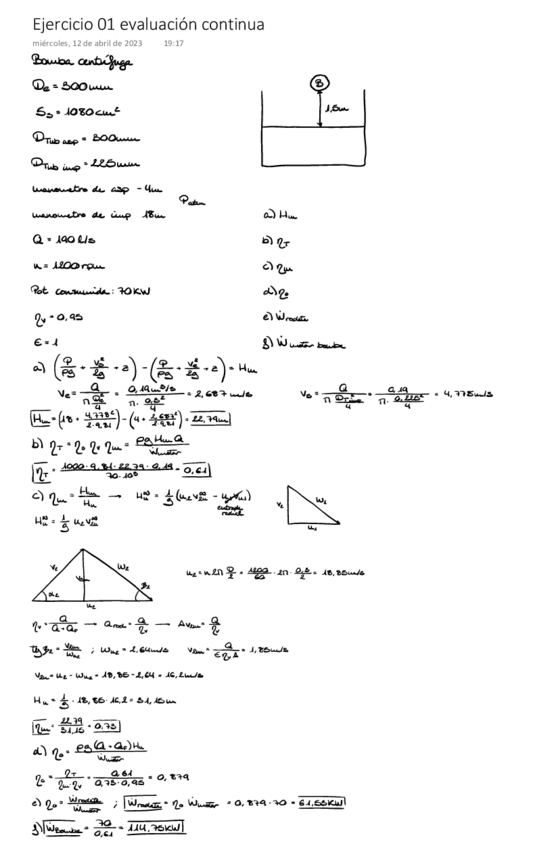 Ejercicio 01 evaluación continua
miércoles, 12 de abril de 2023 19:17
Bomba centrífuga
D₂ = 300mm
S₃ = 1080cm²
D Tub asp = 300mm
D Tub imp = 225mm
manometro de asp - 4m
manometro de imp 18m
Patm
Q = 190 l/s
n = 1200rpm
Pot consumida: 70KW
ηv = 0,95
ε = 1
B
1,5m
a) Hm
b) ηT
c) ηm
d) η₀
e) Ẇrodete
f) Ẇmotor bomba
a) (P/ρg + Vs²/2g + z) - (P/ρg + Ve²/2g + z) = Hm
Ve = Q/(π De²/4) = 0,19m³/s/(π · 0,3²/4) = 2,687 m/s
Vs = Q/(π D²/4) = 0,19/(π · 0,225²/4) = 4,778m/s
Hm = (18 + 4,778²/2·9,81) - (4 + 2,687²/2·9,81) = 22,79m
b) ηT = η₀ ηv ηm = ρgHmQ/Ẇmotor
ηT = 1000·9,81·22,79·0,19/70·10³ = 0,61
c) ηm = Hm/Hu → Hu∞ = 1/g (u₂V₂u∞ - u₁V₁u)
entrada radial
Hu∞ = 1/g u₂ V₂u∞
V₁ W₁ u₁
V₂ W₂ α₂ β₂ u₂
u₂ = n2π D/2 = 1200/60 · 2π · 0,3/2 = 18,85m/s
ηv = Q/(Q+Qr) → Qrod = Q/ηv → AV₂m = Q/ηv
tg β₂ = V₂m/Wu₂ ; Wu₂ = 2,64m/s V₂m = Q/(εηvA) = 1,85m/s
V₂u = u₂ - Wu₂ = 18,85 - 2,64 = 16,2m/s
Hu = 1/g · 18,85 · 16,2 = 31,15m
ηm = 22,79/31,15 = 0,73
d) η₀ = ρg(Q+Qr)Hu/Ẇmotor
η₀ = ηT/(ηm·ηv) = 0,61/(0,73·0,95) = 0,879
e) η₀ = Ẇrodete/Ẇmotor ; Ẇrodete = η₀ Ẇmotor = 0,879·70 = 61,53KW
f) ẆBomba = 70/0,61 = 114,75KW